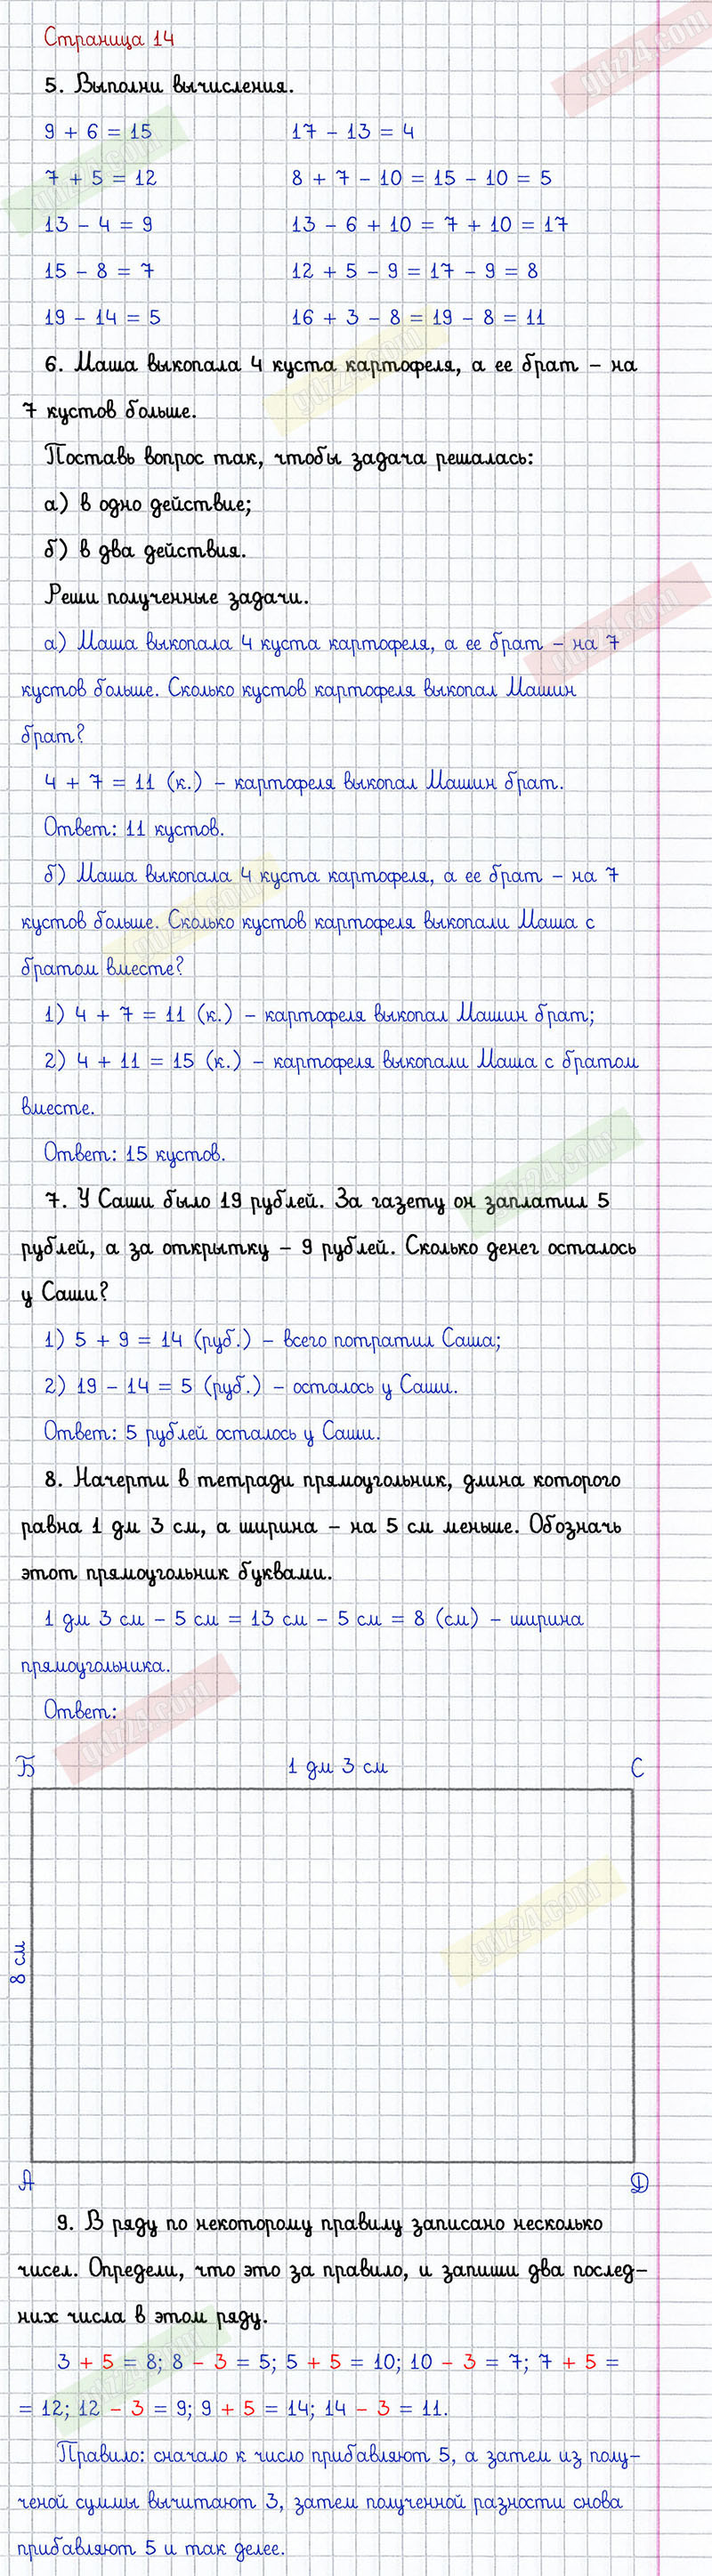 Страница 14
5. Выполни вычисления.
9 + 6 = 15 17 - 13 = 4
7 + 5 = 12 8 + 7 - 10 = 15 - 10 = 5
13 - 4 = 9 13 - 6 + 10 = 7 + 10 = 17
15 - 8 = 7 12 + 5 - 9 = 17 - 9 = 8
19 - 14 = 5 16 + 3 - 8 = 19 - 8 = 11
6. Маша выкопала 4 куста картофеля, а ее брат – на
7 кустов больше.
Поставь вопрос так, чтобы задача решалась:
а) в одно действие;
б) в два действия.
Реши полученные задачи.
а) Маша выкопала 4 куста картофеля, а ее брат – на 7
кустов больше. Сколько кустов картофеля выкопал Машин
брат?
4 + 7 = 11 (к.) – картофеля выкопал Машин брат.
Ответ: 11 кустов.
б) Маша выкопала 4 куста картофеля, а ее брат – на 7
кустов больше. Сколько кустов картофеля выкопали Маша с
братом вместе?
1) 4 + 7 = 11 (к.) – картофеля выкопал Машин брат;
2) 4 + 11 = 15 (к.) – картофеля выкопали Маша с братом
вместе.
Ответ: 15 кустов.
7. У Саши было 19 рублей. За газету он заплатил 5
рублей, а за открытку – 9 рублей. Сколько денег осталось
у Саши?
1) 5 + 9 = 14 (руб.) – всего потратил Саша;
2) 19 - 14 = 5 (руб.) – осталось у Саши.
Ответ: 5 рублей осталось у Саши.
8. Начерти в тетради прямоугольник, длина которого
равна 1 дм 3 см, а ширина – на 5 см меньше. Обозначь
этот прямоугольник буквами.
1 дм 3 см - 5 см = 13 см - 5 см = 8 (см) – ширина
прямоугольника.
Ответ:
Б 1 дм 3 см С
8 см
А Д
9. В ряду по некоторому правилу записано несколько
чисел. Определи, что это за правило, и запиши два послед-
них числа в этом ряду.
3 + 5 = 8; 8 - 3 = 5; 5 + 5 = 10; 10 - 3 = 7; 7 + 5 =
= 12; 12 - 3 = 9; 9 + 5 = 14; 14 - 3 = 11.
Правило: сначало к число прибавляют 5, а затем из полу-
ченой суммы вычитают 3, затем полученной разности снова
прибавляют 5 и так делее.
gdz24.com
gdz24.com
gdz24.com
gdz24.com
gdz24.com
gdz24.com
gdz24.com
gdz24.com
gdz24.com